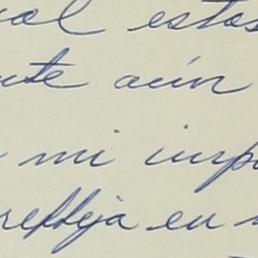 ual estos
nte aún
mi impo
refleja en